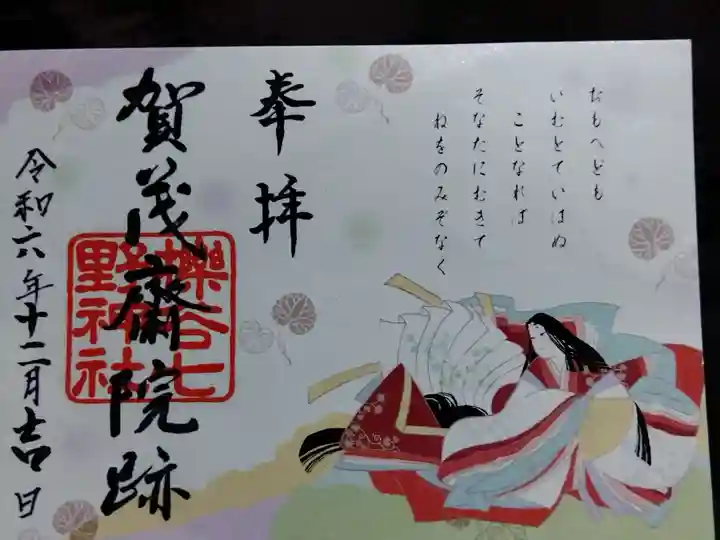 おもへども
いむとていはぬ
ことなれば
そなたにむきて
ねをのみぞなく
奉拝
賀茂齋院跡
櫟谷七野神社
令和六年十二月吉日